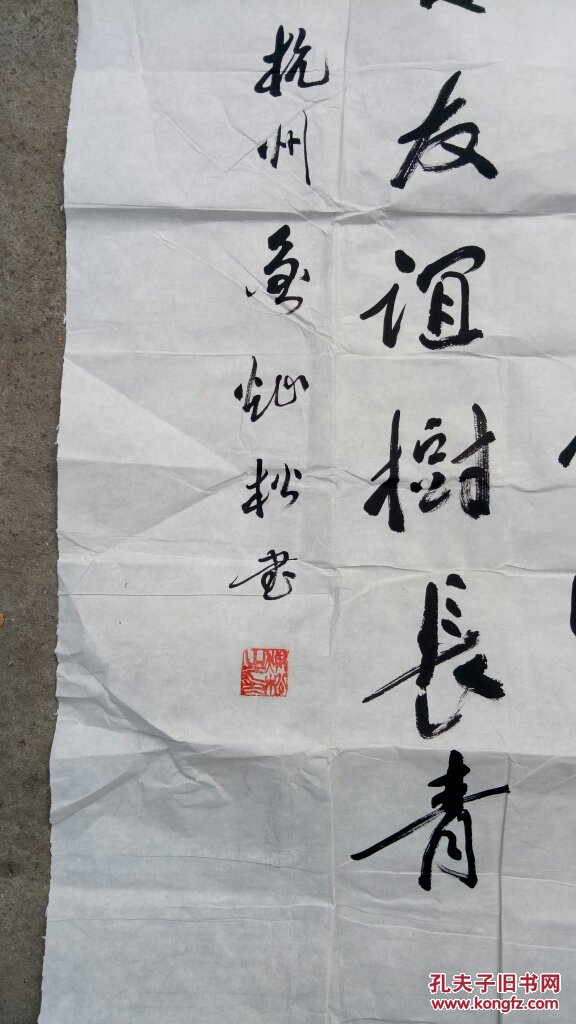 友誼樹長青
杭州
松書
孔夫子旧书网
www.kongfz.com